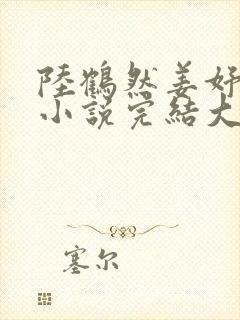 陸鶴然姜妤
小說完結大
塞尔